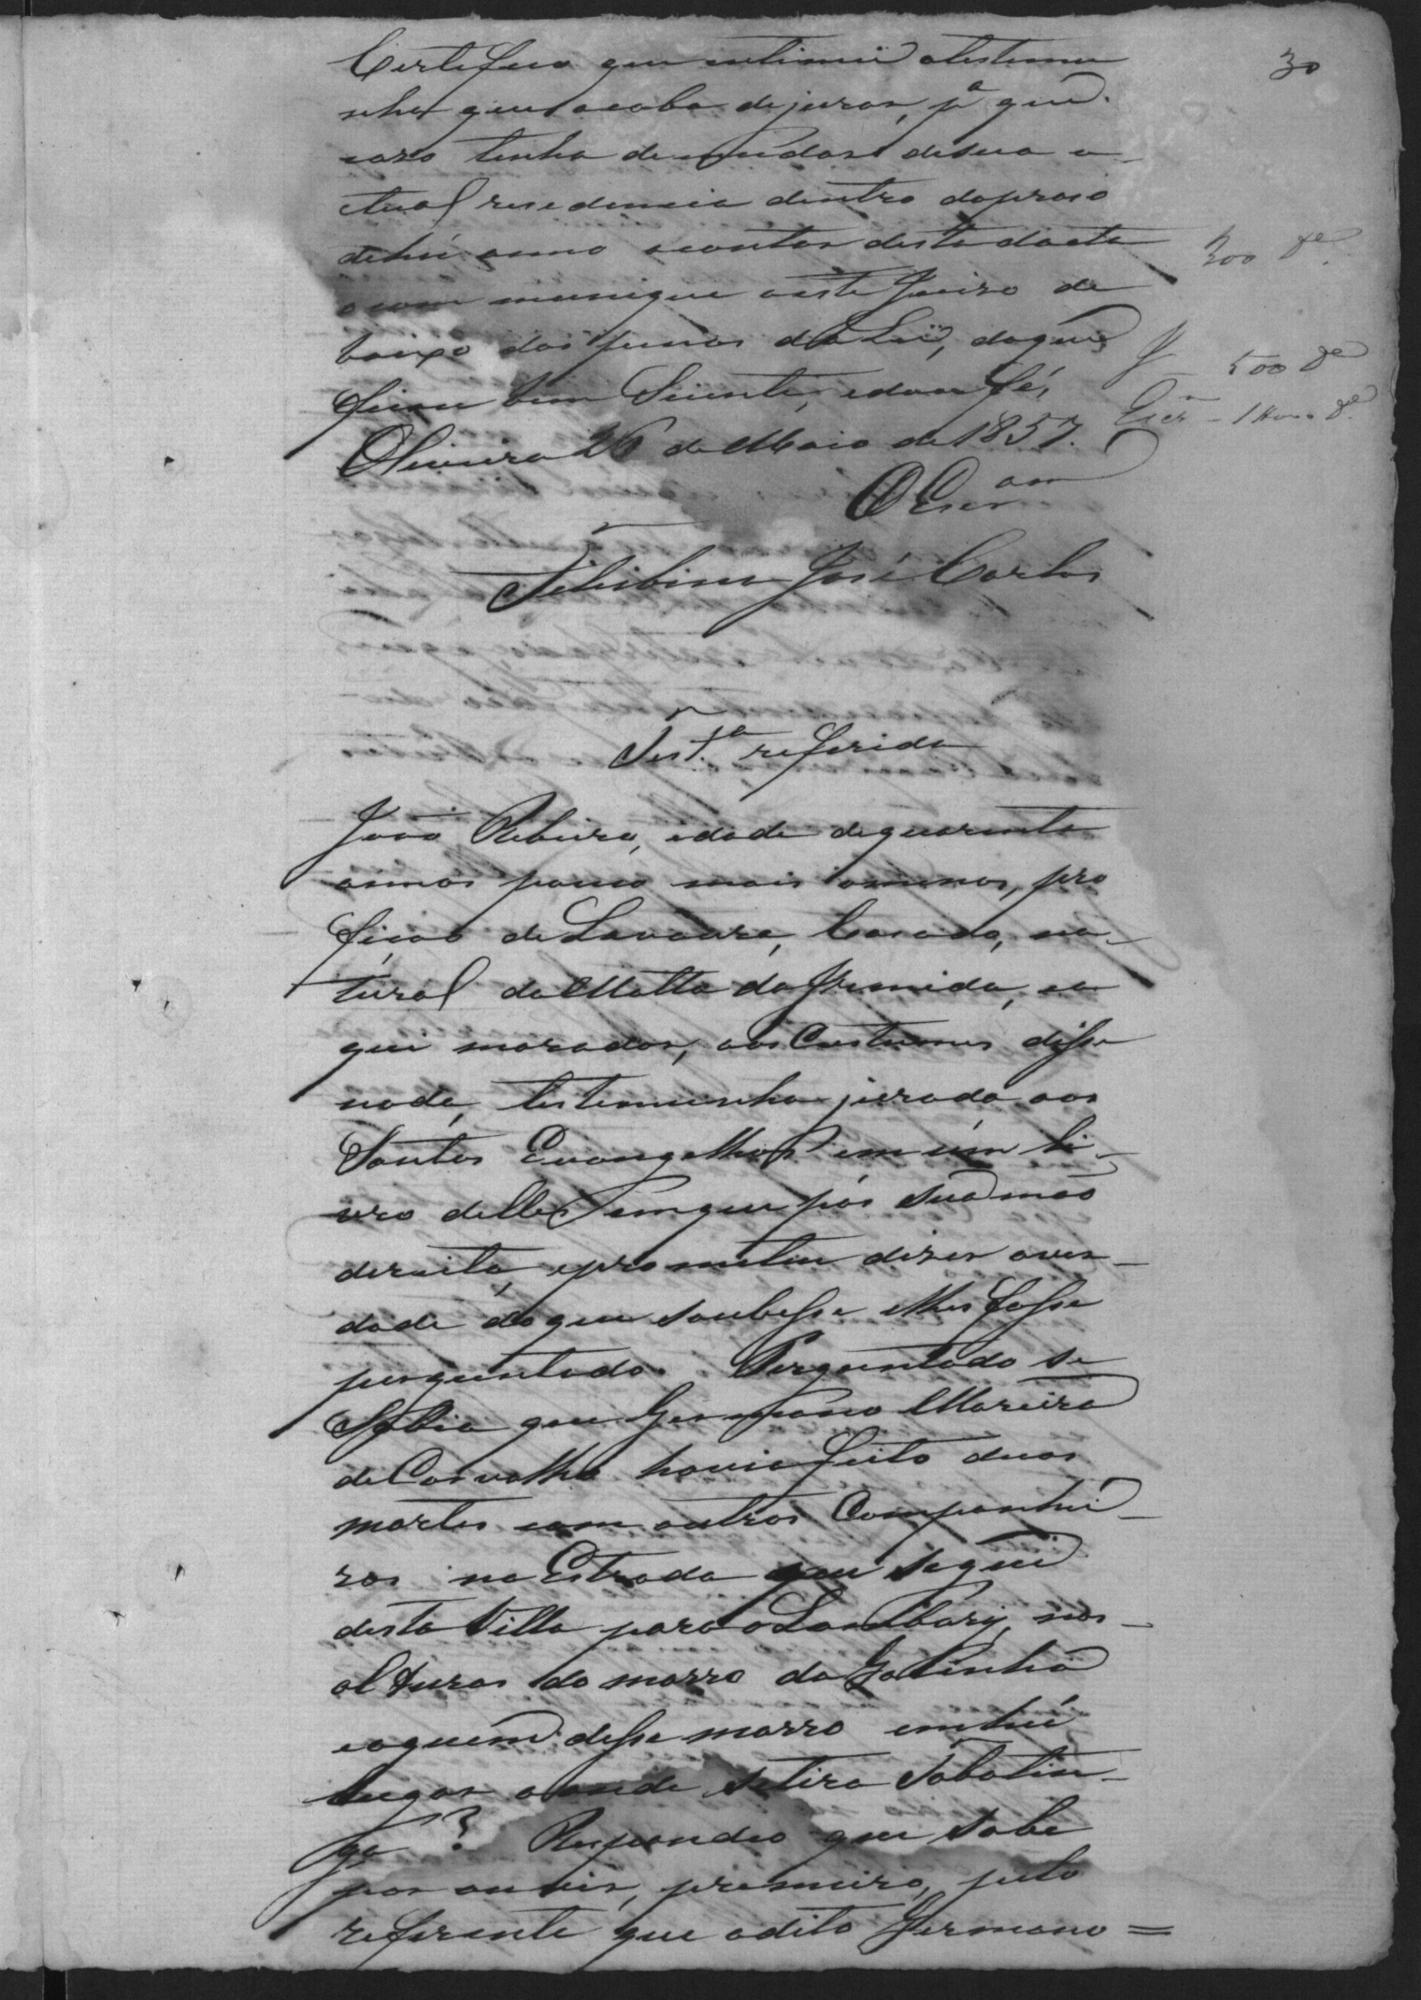 30
Certifico que intimei atestemu
nha que acaba de jurar, pª que
caso tenha de mudar desua a-
ctual residencia dentro do praso
dehú anno acontar desta dacta
ocommunique aeste Juizo de
baixo das penas da Lei, do que
ficou bem Siente, edou fé,
Oliveira 26 de Maio de 1857.
300 Dº
J 500 Dº
Escrm - Dº
O Escram
José Carlos
Testª referida
João Ribeiro, idade dequarenta
annos pouco mais oumenos, pro
ficão de Lavoura, Casado, na-
tural da Matta da Ermida, ea
qui morador, aos Custumes disse
nada, testemunha jurada aos
Santos Evangelhos em úm li-
vro delles emque pós sua mão
dereita, eprometeu dizer aver-
dade doque soubesse elhes fosse
perguntado. Perguntado se
Sabia que Germano Moreira
de Carvalho havia feito duas
mortes com outros Companhei-
ros na Estrada que segue
desta Villa para o Lambary, nas
alturas do morro do Gatinho
eaquem desse morro em hú
lugar aonde setira Tabatin-
ga? Respondeo que sabe
por ouvir, premeiro, pelo
referente que odito Germano =